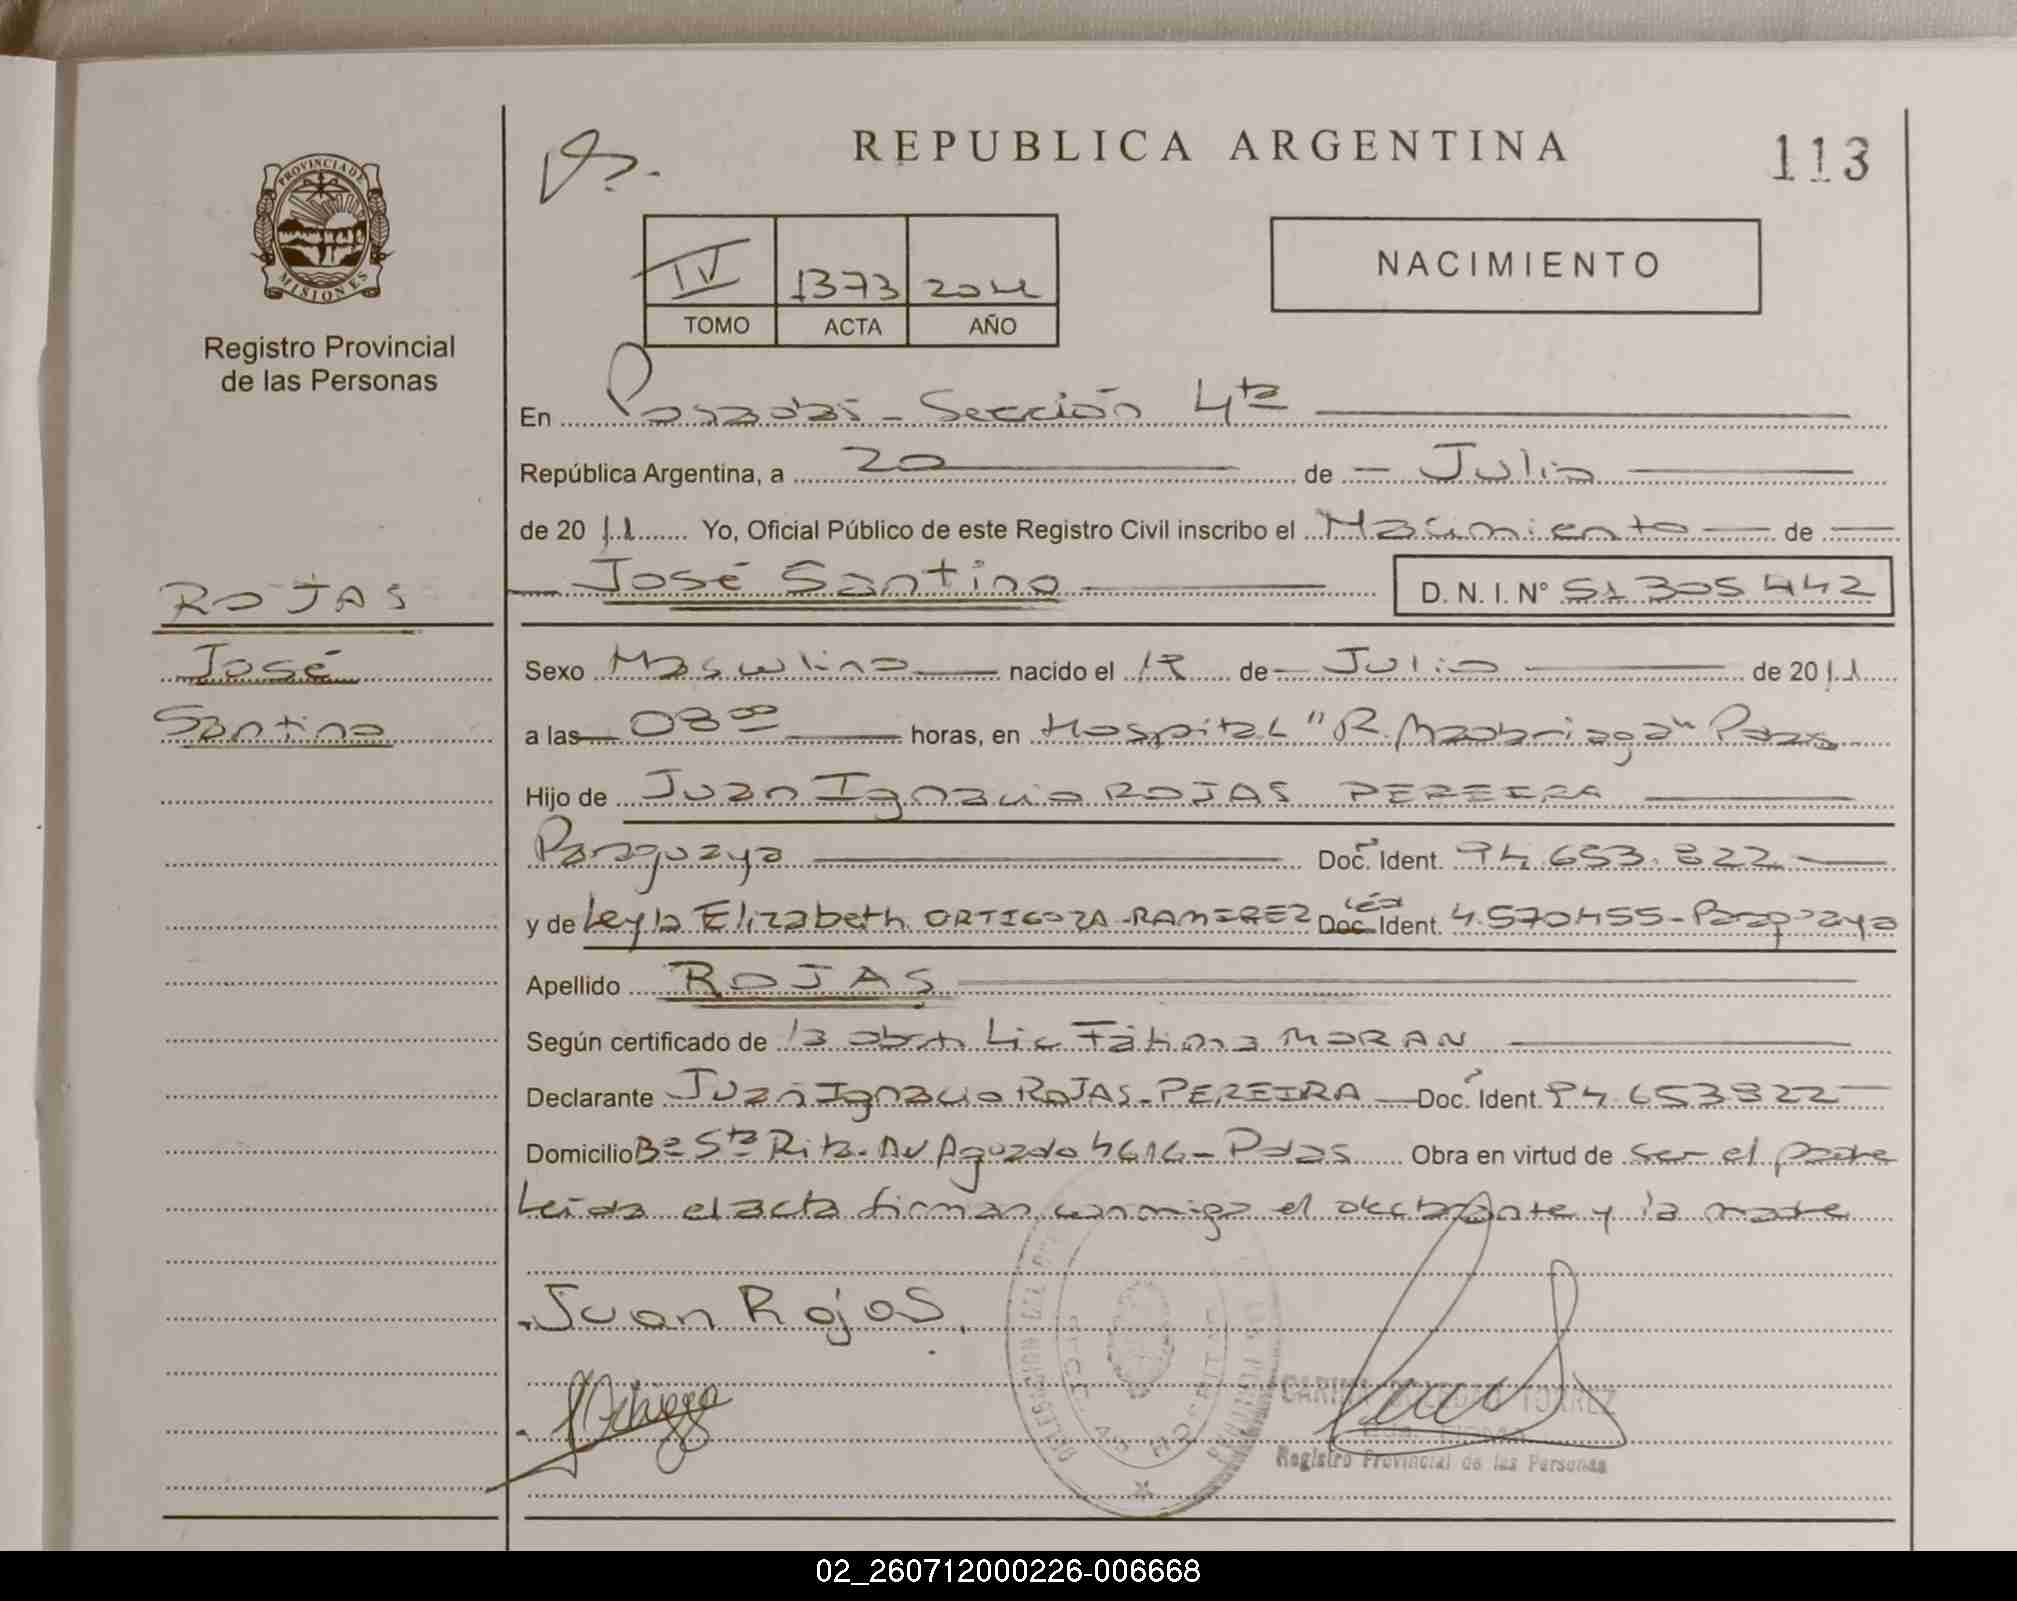 REPUBLICA ARGENTINA
113
PROVINCIA DE
MISIONES
Registro Provincial
de las Personas
IV 1373 2011
TOMO ACTA AÑO
NACIMIENTO
En Posadas - Sección 4ta
República Argentina, a 20 de Julio
de 20 11 Yo, Oficial Público de este Registro Civil inscribo el Nacimiento de
José Santino D. N. I. N° 51 305 442
ROJAS
José
Santino
Sexo Masculino nacido el 17 de Julio de 20 11
a las 08 00 horas, en Hospital "R. Madariaga" Pdas
Hijo de Juan Ignacio ROJAS PEREIRA
Paraguaya Doc. Ident. 94.653.822
y de Leyla Elizabeth ORTIGOZA-RAMIREZ Doc. Ident. 4.570455-Paraguaya
Apellido ROJAS
Según certificado de la obst Lic Fátima MORAN
Declarante Juan Ignacio ROJAS-PEREIRA Doc. Ident. 94.653822
Domicilio Bº Sta Rita. Av Aguado 4616 - Pdas Obra en virtud de ser el padre
Leida el acta firman conmigo el declarante y la madre
Juan Rojas
TORREZ
Registro Provincial de las Personas
02_260712000226-006668